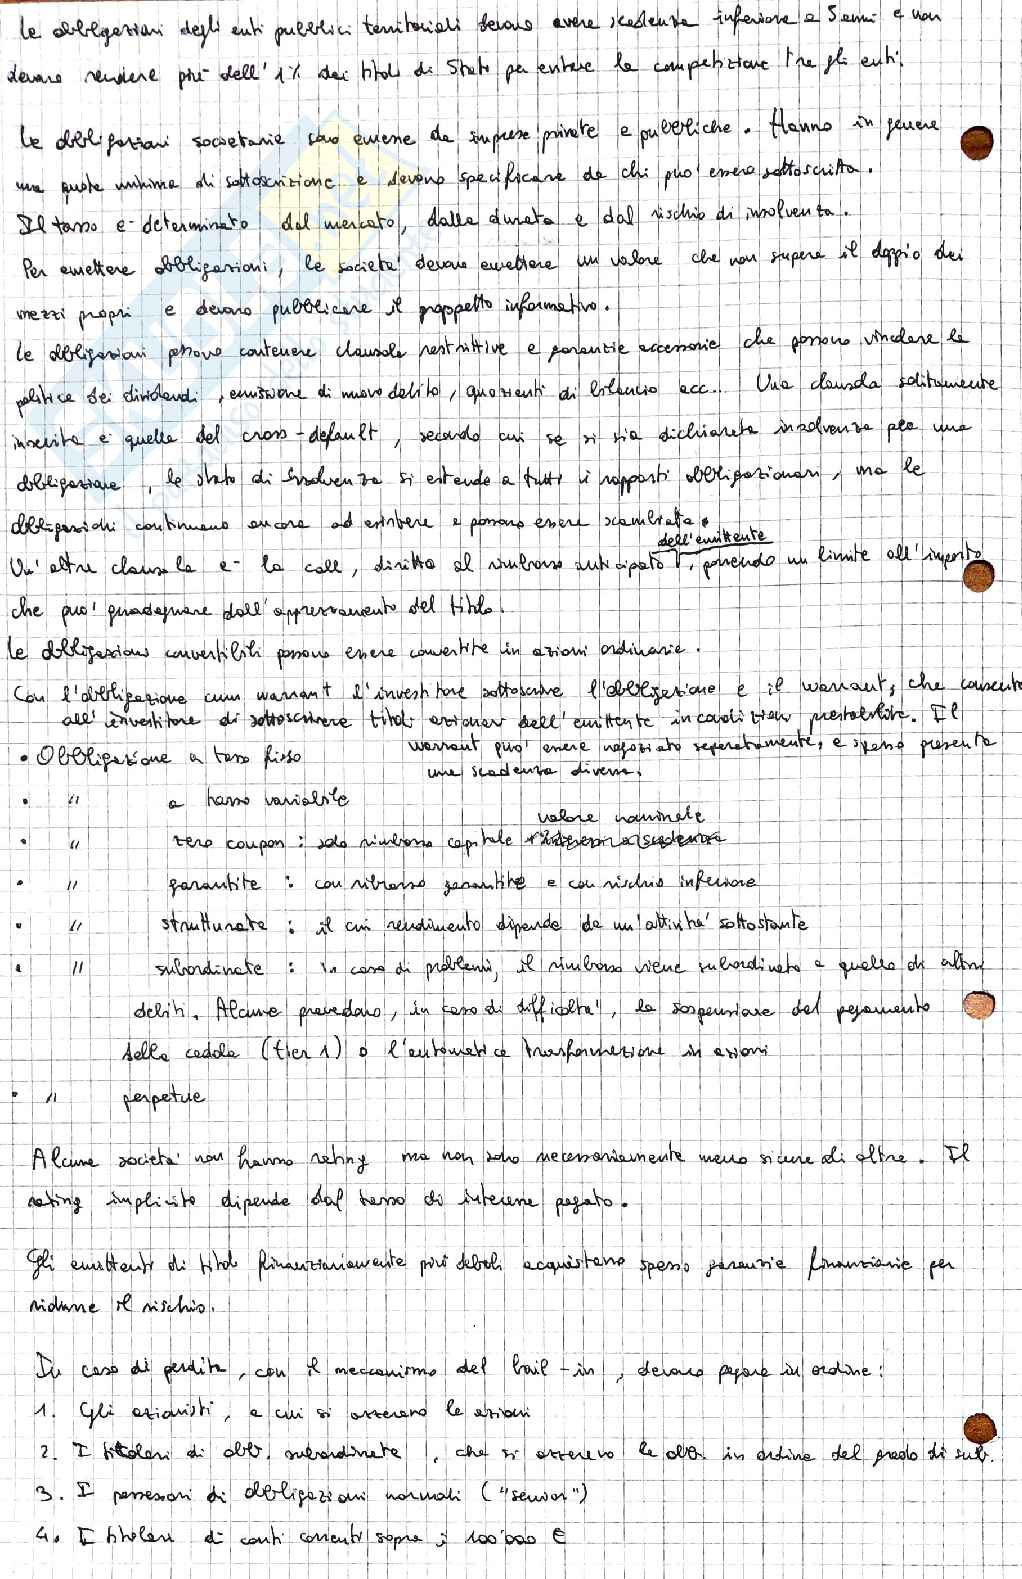 Le obbligazioni degli enti pubblici territoriali devono avere scadenza inferiore a 5 anni e non
devono rendere più dell'1% dei titoli di Stato per evitare la competizione tra gli enti.
Le obbligazioni societarie sono emesse da imprese private e pubbliche. Hanno in genere
una quota minima di sottoscrizione e devono specificare da chi può essere sottoscritta.
Il tasso è determinato dal mercato, dalla durata e dal rischio di insolvenza.
Per emettere obbligazioni, le società devono emettere un valore che non supera il doppio dei
mezzi propri e devono pubblicare il prospetto informativo.
Le obbligazioni possono contenere clausole restrittive e garanzie accessorie che possono vincolare la
politica dei dividendi, emissione di nuovo debito, quozienti di bilancio ecc... Una clausola solitamente
inserita è quella del cross-default, secondo cui se si sia dichiarata insolvenza per una
obbligazione, lo stato di insolvenza si estende a tutti i rapporti obbligazionari, ma le
obbligazioni continuano ancora ad esistere e possono essere scambiate.
Un'altra clausola è la call, diritto al rimborso anticipato dell'emittente, ponendo un limite all'importo
che può guadagnare dall'apprezzamento del titolo.
Le obbligazioni convertibili possono essere convertite in azioni ordinarie.
Con l'obbligazione cum warrant l'investitore sottoscrive l'obbligazione e il warrant, che consente
all'investitore di sottoscrivere titoli azionari dell'emittente in condizioni prestabilite. Il
warrant può essere negoziato separatamente, e spesso presenta
una scadenza diversa.
• Obbligazione a tasso fisso
• " a tasso variabile
• " zero coupon: solo rimborso capitale valore nominale
• " garantite: con rimborso garantito e con rischio inferiore
• " strutturate: il cui rendimento dipende da un'attività sottostante
• " subordinate: in caso di problemi, il rimborso viene subordinato a quello di altri
debiti. Alcune prevedono, in caso di difficoltà, la sospensione del pagamento
della cedola (tier 1) o l'automatica trasformazione in azioni
• " perpetue
Alcune società non hanno rating ma non sono necessariamente meno sicure di altre. Il
rating implicito dipende dal tasso di interesse pagato.
Gli emittenti di titoli finanziariamente più deboli acquistano spesso garanzie finanziarie per
ridurre il rischio.
In caso di perdita, con il meccanismo del bail-in, devono pagare in ordine:
1. Gli azionisti, a cui si azzerano le azioni
2. I titolari di obb. subordinate, che si azzerano le obb. in ordine del grado di sub.
3. I possessori di obbligazioni normali ("senior")
4. I titolari di conti correnti sopra i 100'000 €